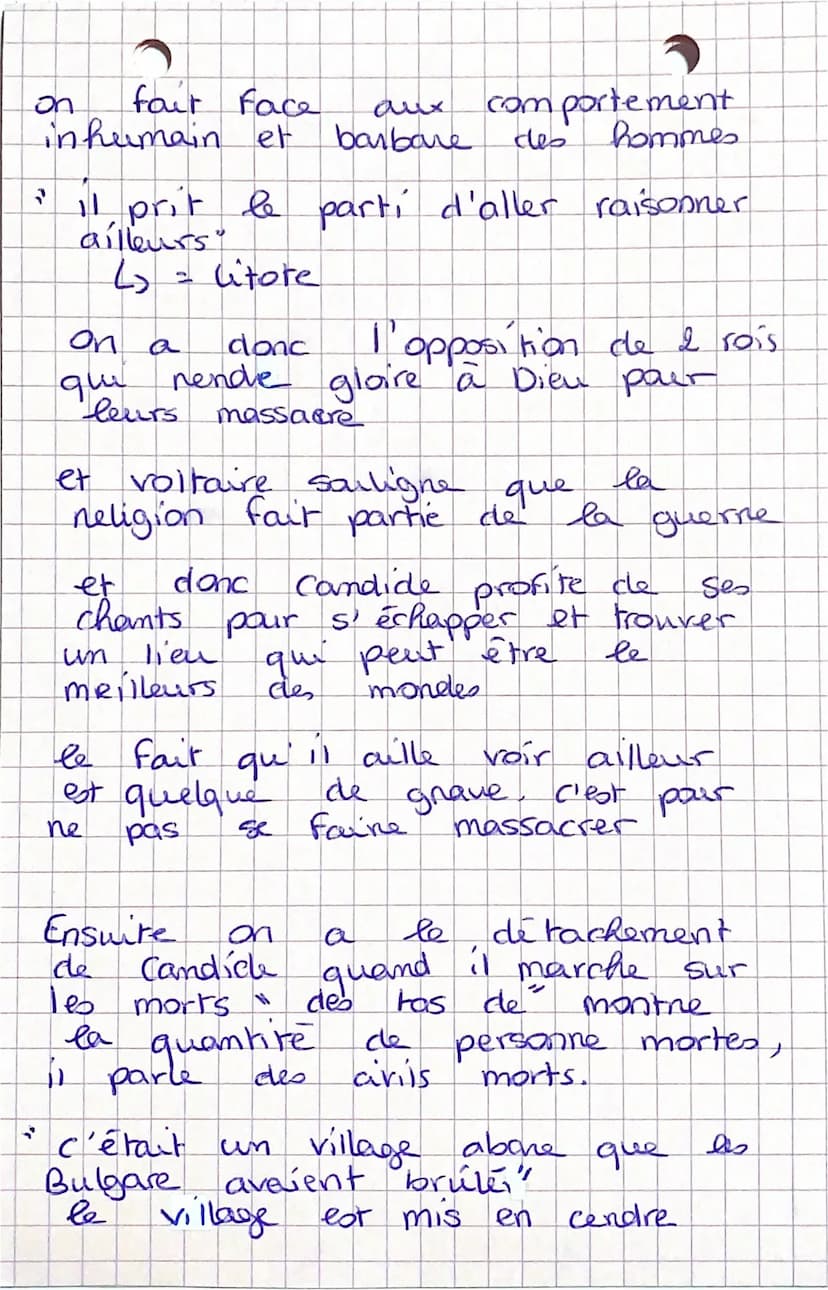 on fait face aux comportement
inhumain et barbare des hommes
" il prit le parti d'aller raisonner
ailleurs"
↳ = litote
on a donc l'opposition de 2 rois
qui rende gloire à Dieu pour
leurs massacre
et voltaire souligne que la
religion fait partie de la guerre
et donc Candide profite de ses
chants pour s'échapper et trouver
un lieu qui peut être le
meilleurs des mondes
le fait qu'il aille voir ailleur
est quelque de grave, c'est pour
ne pas se faire massacrer
Ensuite on a le détachement
de Candide quand il marche sur
les morts " des tas de" montre
la quantité de personne mortes,
il parle des civils morts.
" c'était un village abare que les
Bulgare avaient brûlé"
le village est mis en cendre